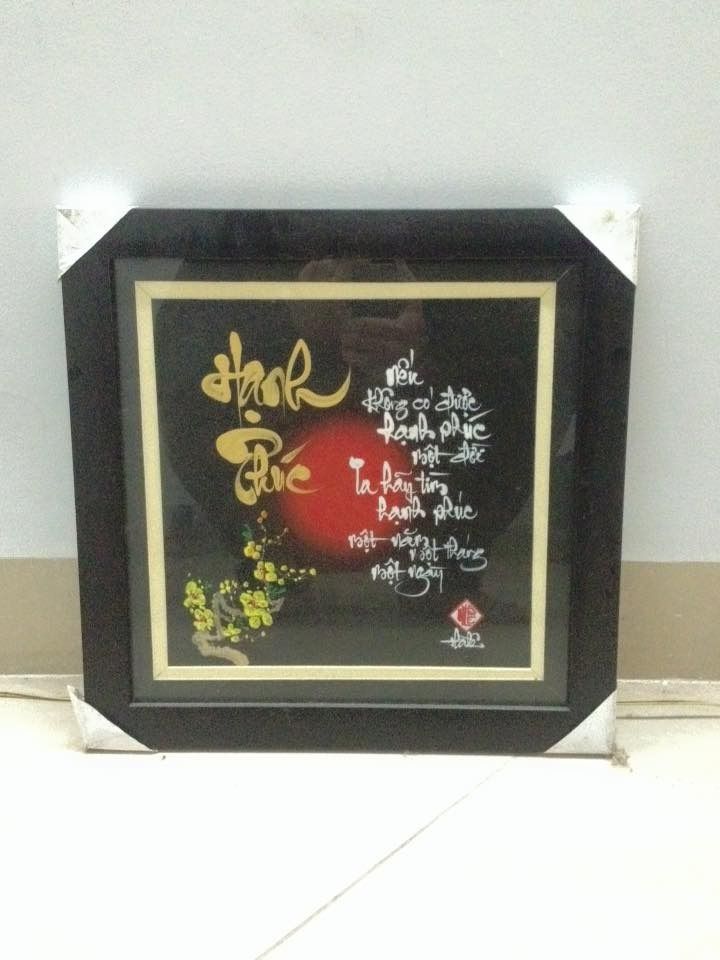 Hạnh
Phúc
nếu
không có được
hạnh phúc
một đời
Ta hãy tìm
hạnh phúc
một năm
một tháng
một ngày